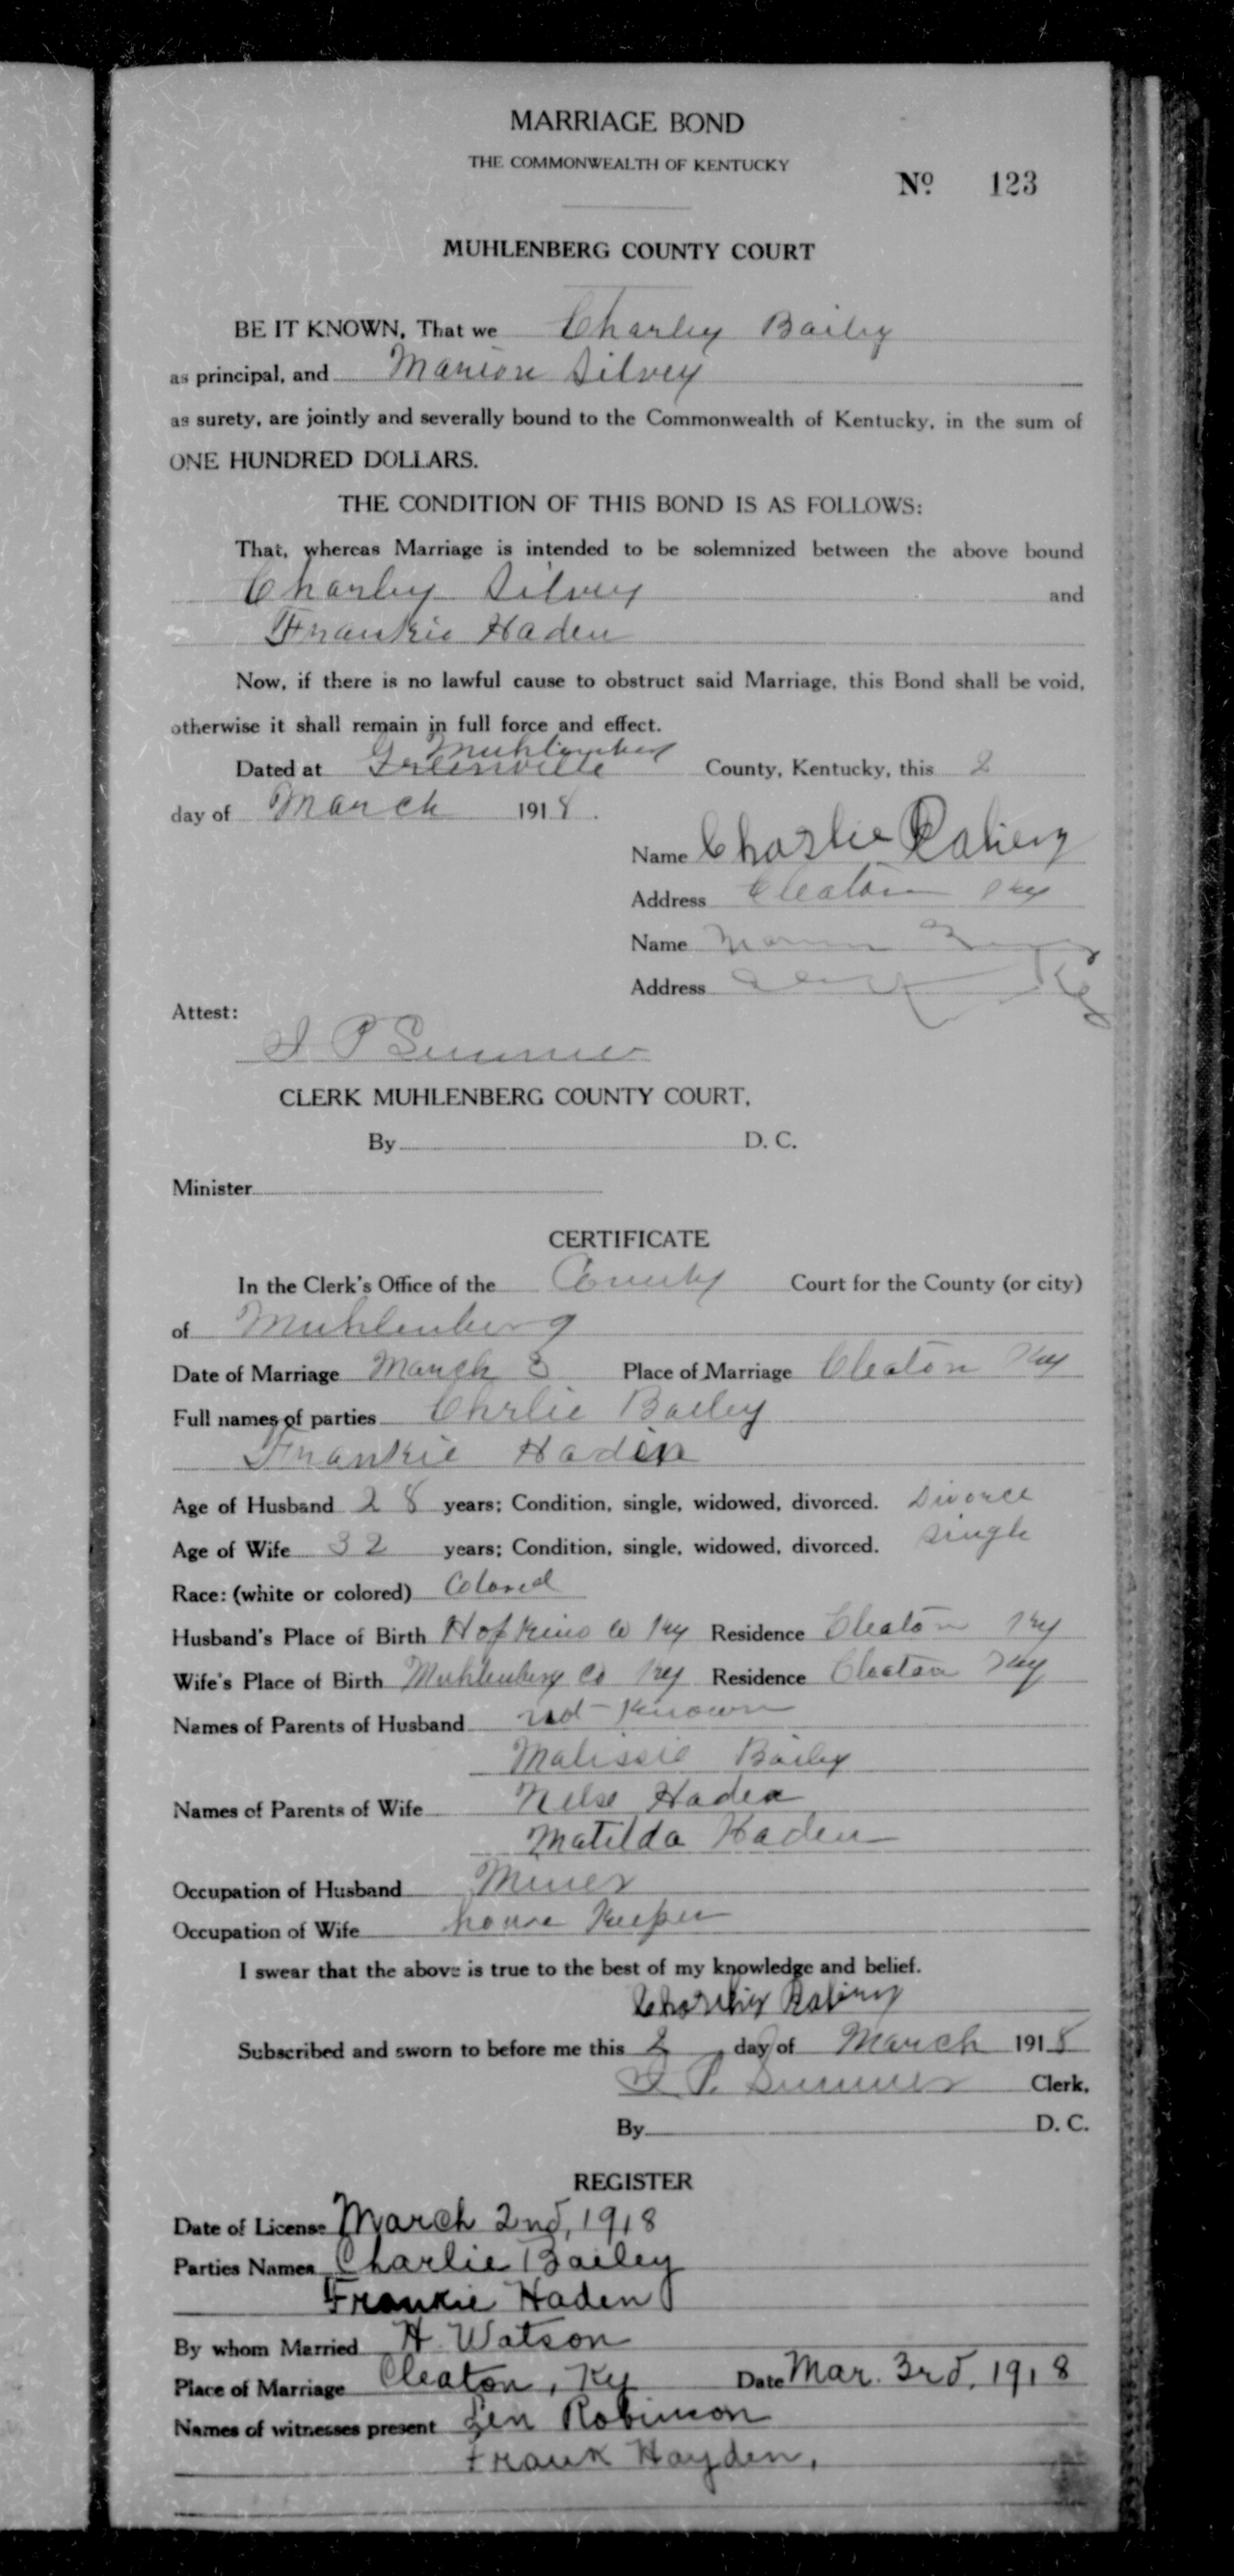 MARRIAGE BOND
THE COMMONWEALTH OF KENTUCKY
No. 123
MUHLENBERG COUNTY COURT
BE IT KNOWN, That we Charley Bailey
as principal, and Marion Silvey
as surety, are jointly and severally bound to the Commonwealth of Kentucky, in the sum of
ONE HUNDRED DOLLARS.
THE CONDITION OF THIS BOND IS AS FOLLOWS:
That, whereas Marriage is intended to be solemnized between the above bound
Charley Silvey and
Frankie Haden
Now, if there is no lawful cause to obstruct said Marriage, this Bond shall be void,
otherwise it shall remain in full force and effect.
Muhlenberg
Dated at Greenville County, Kentucky, this 2
day of March 1918.
Name Charlie
Address Cleaton Ky
Name
Address Ky
Attest:
Summer
CLERK MUHLENBERG COUNTY COURT,
By D. C.
Minister
CERTIFICATE
In the Clerk's Office of the County Court for the County (or city)
of Muhlenberg
Date of Marriage March 3 Place of Marriage Cleaton Ky
Full names of parties Chrlie Bailey
Frankie Haden
Age of Husband 28 years; Condition, single, widowed, divorced. Divorce
Age of Wife 32 years; Condition, single, widowed, divorced. Single
Race: (white or colored) Colored
Husband's Place of Birth Hopkins Co Ky Residence Cleaton Ky
Wife's Place of Birth Muhlenberg Co Ky Residence Cleaton Ky
Names of Parents of Husband not Known
Malissie Bailey
Names of Parents of Wife Nelse Haden
Matilda Haden
Occupation of Husband Miner
Occupation of Wife house Keeper
I swear that the above is true to the best of my knowledge and belief.
Subscribed and sworn to before me this 2 day of March 1918
Summer Clerk,
By D. C.
REGISTER
Date of License March 2nd, 1918
Parties Names Charlie Bailey
Frankie Haden
By whom Married H. Watson
Place of Marriage Cleaton, Ky Date Mar. 3rd, 1918
Names of witnesses present Len Robinson
Frank Hayden,